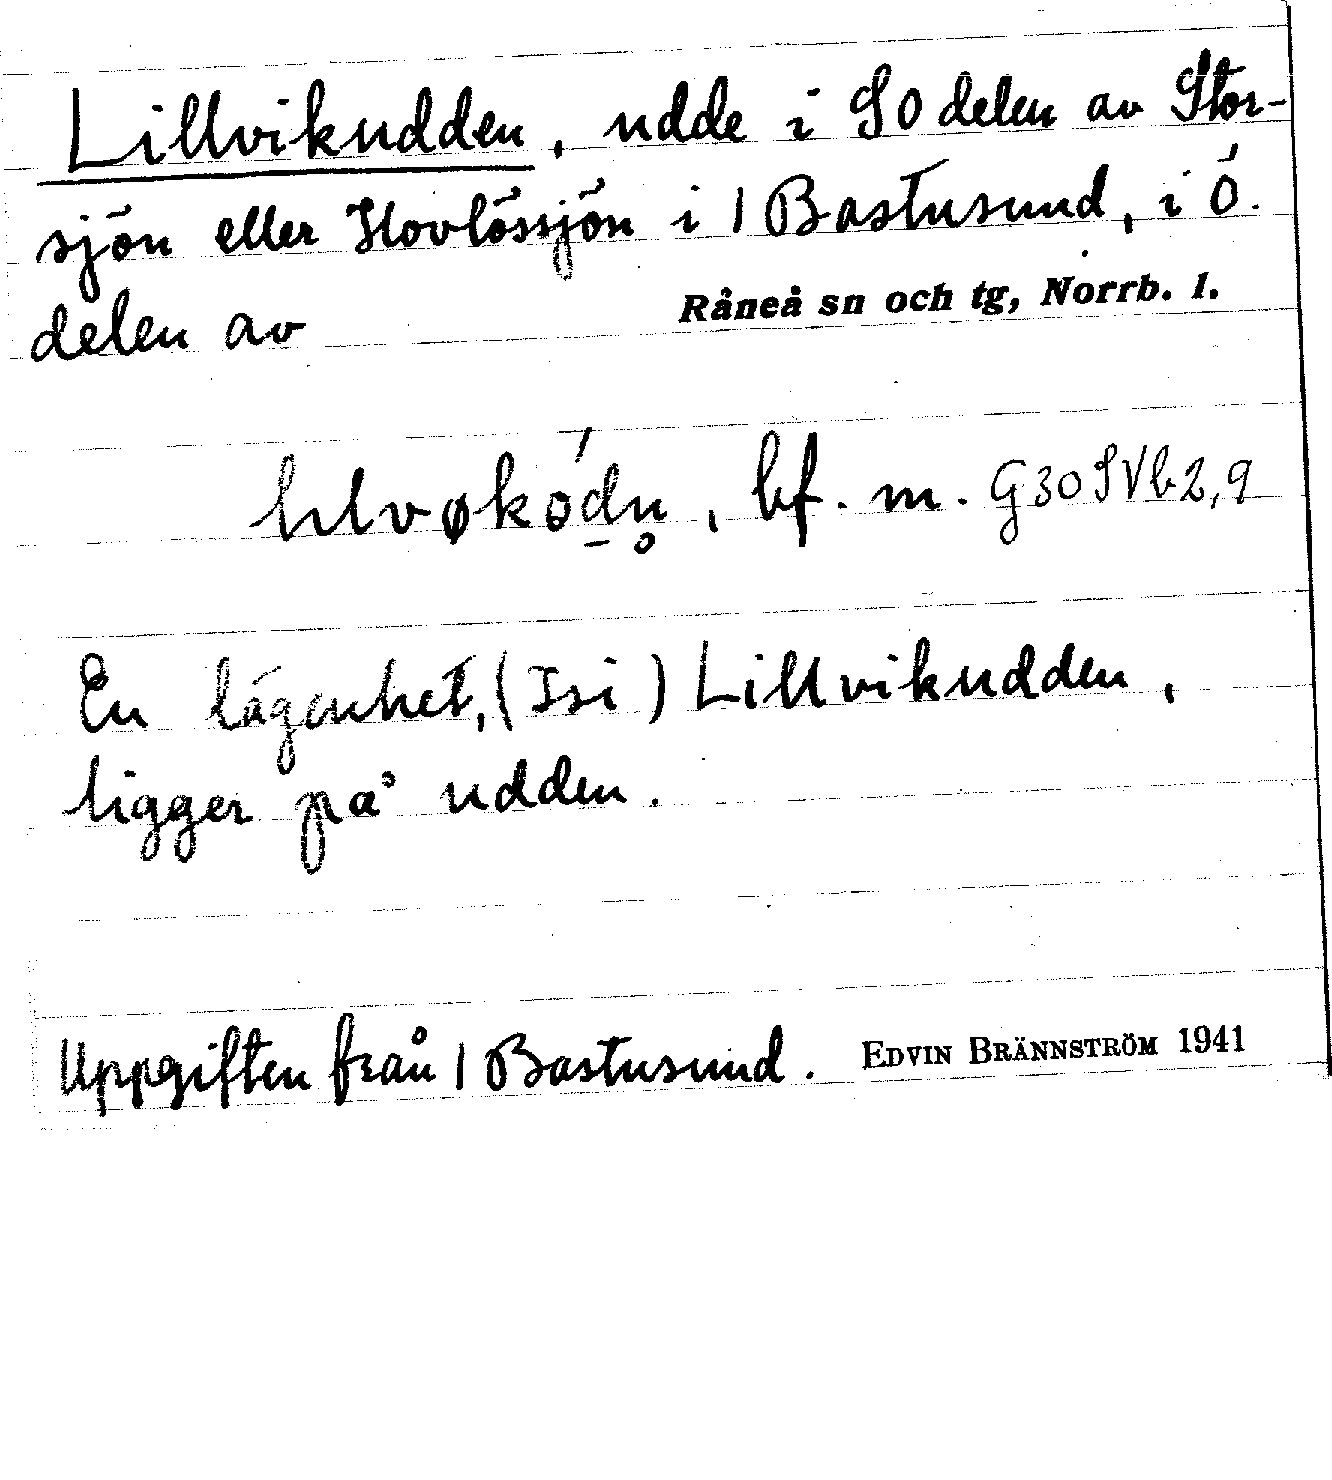 Lillvikudden, udde i SO delen av Stor-
sjön eller Hovlössjön i 1 Bastusund, i Ö.
delen av Råneå sn och tg, Norrb. l.
bf. m. G30SVb2,9
En lägenhet, (Isi) Lillvikudden,
ligger på udden.
Uppgiften från 1 Bastusund. EDVIN BRÄNNSTRÖM 1941